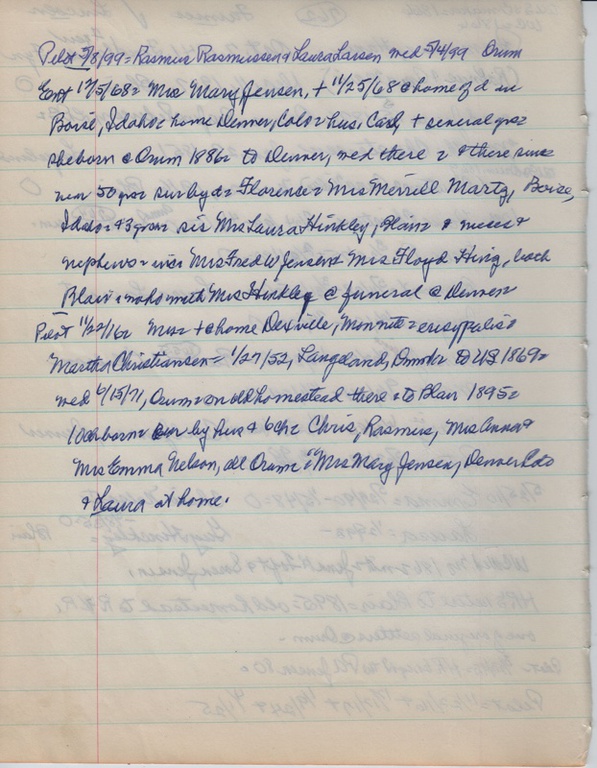 Pilot 5/8/99 = Rasmus Rasmussen & Laura Larsen med 5/4/99 Orum
Ent 12/5/68 = Mrs Mary Jensen, + 11/25/68 @ home of d in
Boise, Idaho = home Denver, Colo = hus. Carl + several yrs
she born @ Orum 1886 = to Denver, med there = & there since
50 yrs = sur by d = Florence = Mrs Merrill Martz, Boise,
Idaho = & 3 gr = sis Mrs Laura Hinkley, Blair & nieces &
nephews = Mrs Fred W Jensen & Mrs Floyd King, both
Blair = with Mrs Hinkley @ funeral @ Denver
Pilot 11/22/16 = + @ home = erisypalis =
Martha Christiansen = 1/27/52, Langeland, Dnmk = to US 1869 =
med 4/15/71, Orum = on old homestead there = to Blair 1895 =
10 ch born = sur by hus & 6 ch = Chris, Rasmus, Mrs Anna &
Mrs Emma Nelson, all Orum = Mrs Mary Jensen, Denver Colo
& Laura at home.